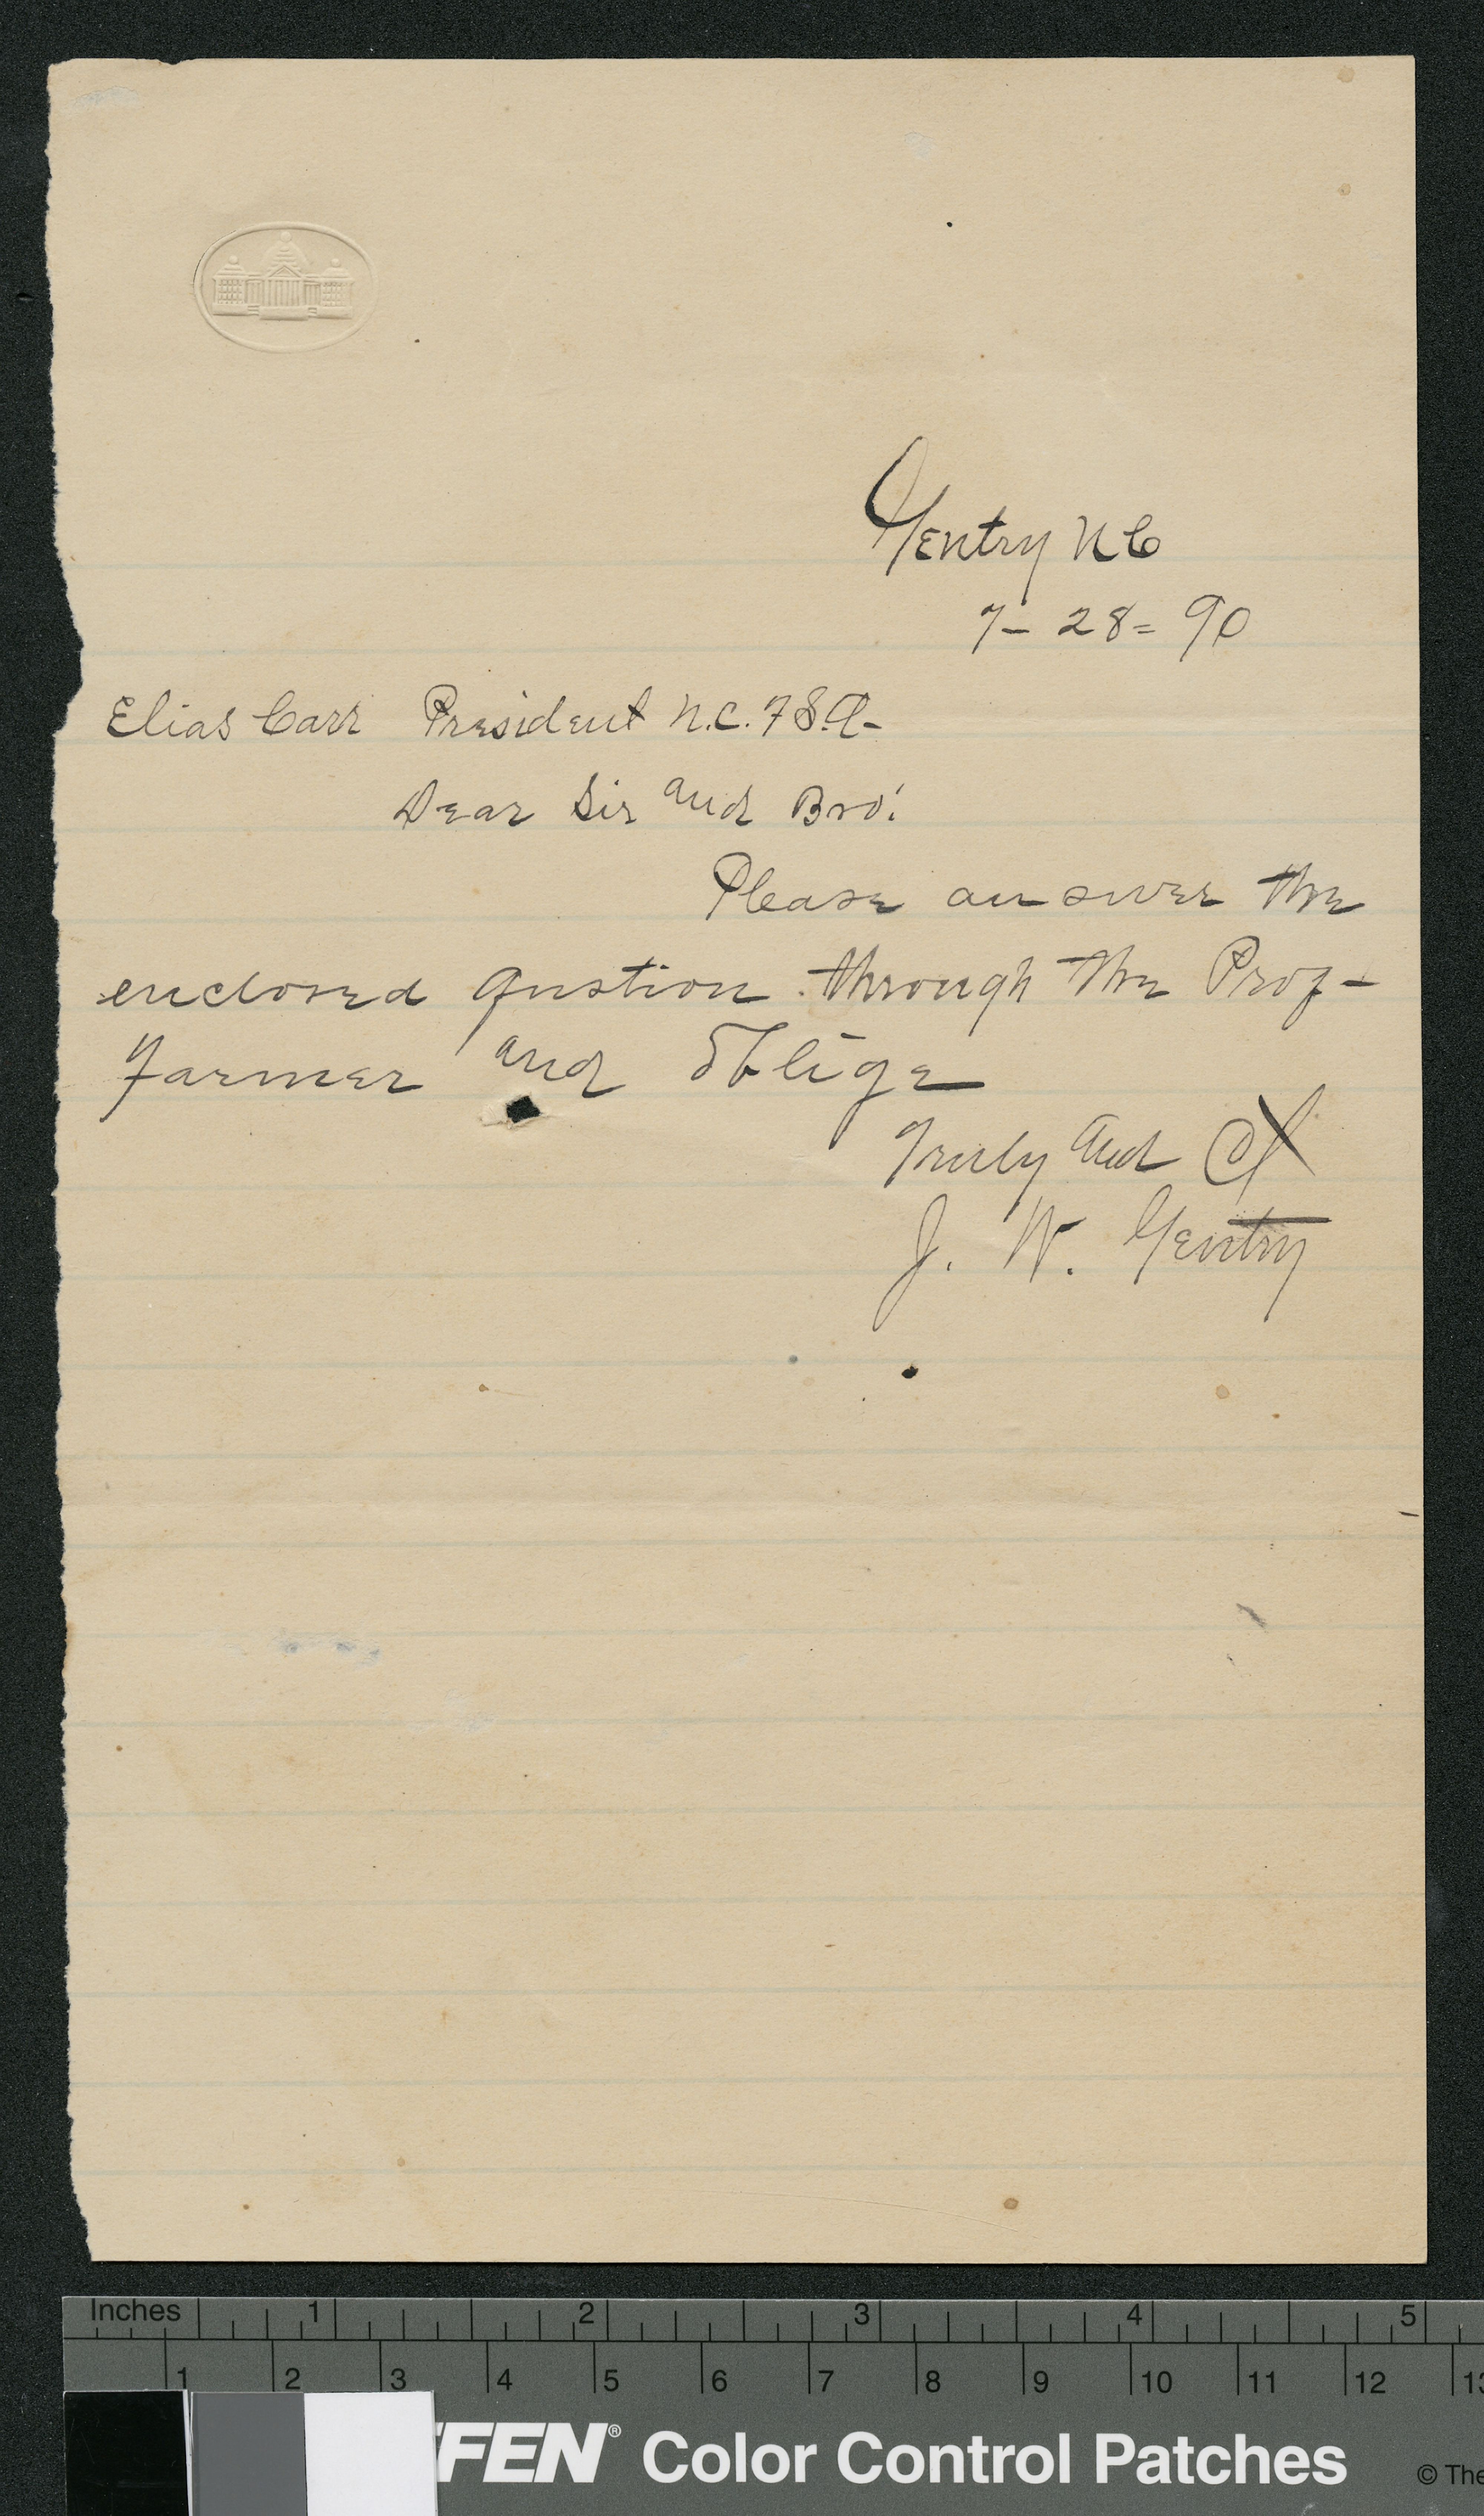 Gentry N C
7- 28= 90
Elias Carr President N.C. F S.A-
Dear Sir and Bro!
Please answer the
enclosed qustion through the Prog-
Farmer and oblige
Truly and
J. W. Gentry
Inches 1 2 3 4 5
1 2 3 4 5 6 7 8 9 10 11 12
FFEN® Color Control Patches © The